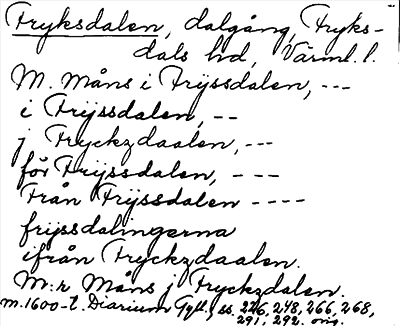 Fryksdalen, dalgång, Fryks-
dals hd, Värml. l.
M. Måns i Frijssdalen, ---
i Frijssdalen, --
j Fryckzdaalen, ---
för Frijssdalen, ---
Från Frijssdalen ----
frijssdalingerna
ifrån Fryckzdaalen.
M:r Måns j Fryckzdalen.
m.1600-t. Diarium Gyll., ss. 226, 248, 266, 268,
291, 292. orig.